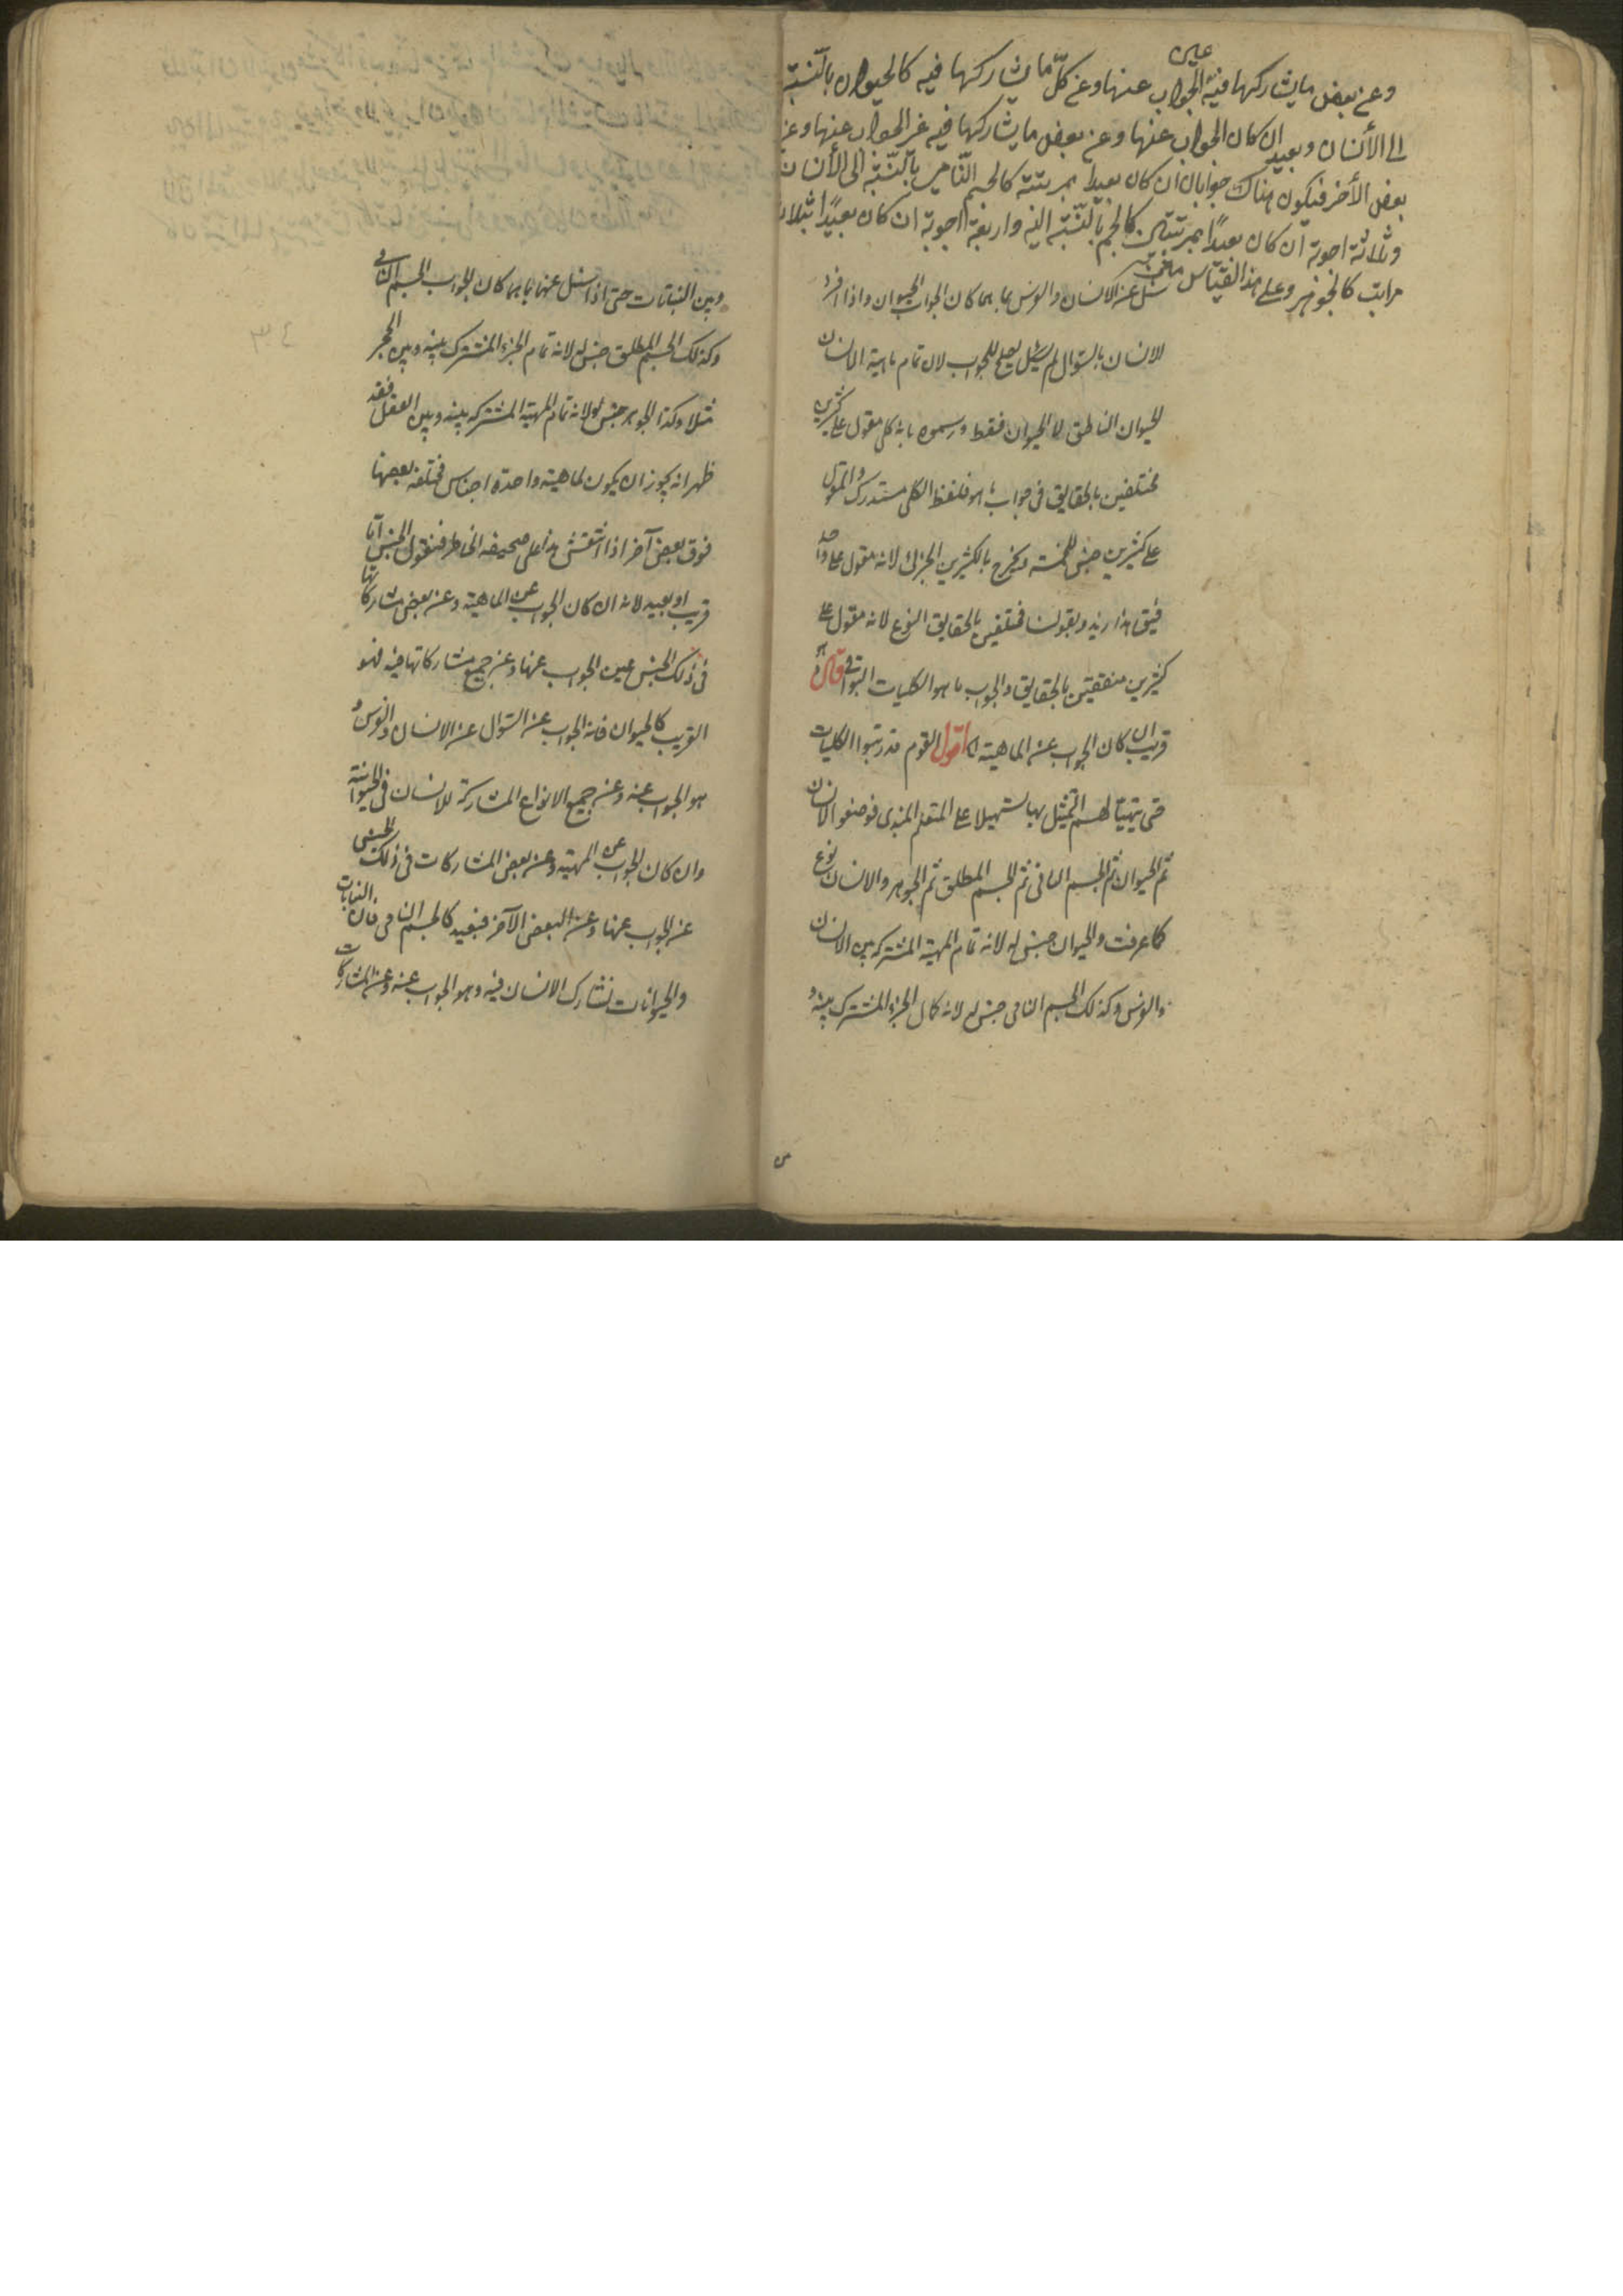 وعن بعض ما يشاركها فيه عين الجواب عنها وعن كلّ ما يشاركها فيه كالحيوان بالنّسبة
الى الأنسان وبعيد ان كان الجواب عنها وعن بعض ما يشاركها فيه غير الجواب عنها وعن
بعض الأخر فيكون هناك جوابان ان كان بعيدا بمرتبة كالجسم النّامى بالنّسبة الى الأنسان
وثلاثة اجوبة ان كان بعيدًا بمرتبتين كالجسم بالنّسبة اليه واربعة اجوبة ان كان بعيدًا بثلاث
مراتب كالجوهر وعلى هذا القياس
سئل عن الانسان والفرس بما هما كان الجواب الحيوان واذا افرد
للانسان بالسّوال لم يصلح للجواب لان تمام ماهية الانسان
الحيوان الناطق لا الحيوان فقط ورسموه بانه كلى مقول على كثيرين
مختلفين بالحقايق فى جواب ما هو فلفظ الكلى مستدرك والمقول
على كثيرين جنس للخمسة ويخرج بالكثيرين الجزئى لانه مقول على واحد
فيق هذا زيد وبقولنا مختلفين بالحقايق النوع لانه مقول على
كثيرين متفقين بالحقايق والجواب ما هو الكليات البواقى قال وهو
قريب ان كان الجواب عن الماهية الخ اقول القوم قد رتبوا الكليات
حتى يتهيّأ لهم التمثيل بها تسهيلا على المتعلم المبتدى فوضعوا الانسان
ثم الحيوان ثم الجسم النامى ثم الجسم المطلق ثم الجوهر والانسان نوع
كما عرفت والحيوان جنس له لانه تمام المهية المشتركة بين الانسان
والفرس وكذلك الجسم النامى جنس له لانه كمال الجزء المشترك بينه و
وبين النباتات حتى اذا سئل عنهما بما هما كان الجواب الجسم النامى
وكذلك الجسم المطلق جنس له لانه تمام الجزء المشترك بينه وبين الحجر
مثلا وكذا الجوهر جنس له لانه تمام المهية المشتركة بينه وبين العقل فقد
ظهر انه يجوز ان يكون لماهية واحدة اجناس مختلفة بعضها
فوق بعض آخر اذا انتقش هذا على صحيفة الخاطر فنقول الجنس امّا
قريب او بعيد لانه ان كان الجواب عن الماهية وعن بعض مشاركاتها
فى ذلك الجنس عين الجواب عنها وعن جميع مشاركاتها فيه فهو
القريب كالحيوان فانه الجواب عن السّوال عن الانسان والفرس و
هو الجواب عنه وعن جميع الانواع المشاركة للانسان فى الحيوانية
وان كان الجواب عن المهية وعن بعض المشاركات فى ذلك الجنس
غير الجواب عنها وعن البعض الآخر فبعيد كالجسم النامى فان النباتات
والحيوانات تشارك الانسان فيه وهو الجواب عنه وعن المشاركات